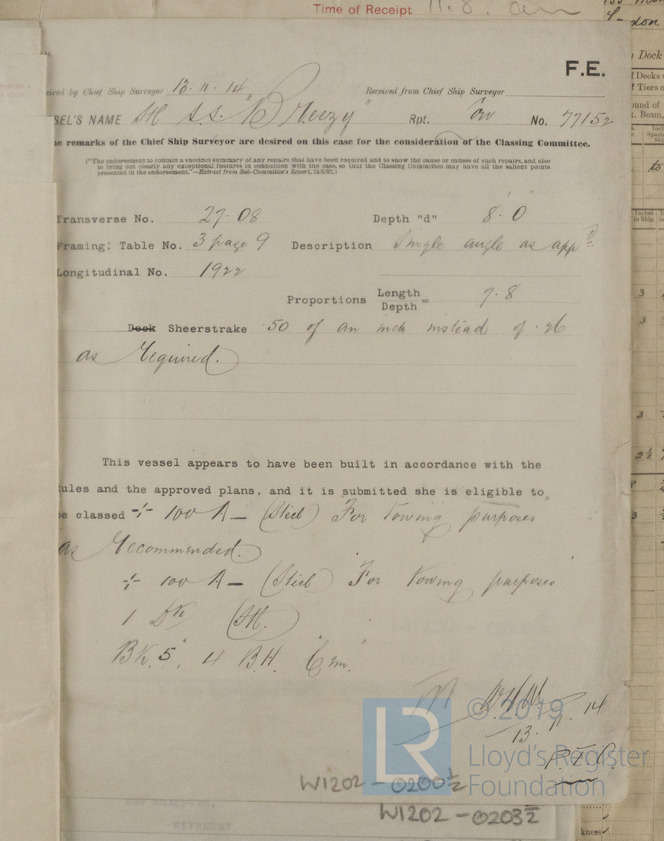 Time of Receipt 11.8. am
F.E.
ived by Chief Ship Surveyor 13.11.14 Received from Chief Ship Surveyor
SEL'S NAME S.S. "Breezy" Rpt. No. 77152
he remarks of the Chief Ship Surveyor are desired on this case for the consideration of the Classing Committee.
("The endorsement to contain a succinct summary of any repairs that have been required and to show the cause or causes of such repairs, and also
to bring out clearly any exceptional features in connection with the case, so that the Classing Committee may have all the salient points
presented in the endorsement."—Extract from Sub-Committee's Report, 24/5/92.)
Transverse No. 27.08 Depth "d" 8'.0"
Framing: Table No. 3 page 9 Description Single angle as app^d
Longitudinal No. 1922
Proportions Length
Depth = 7.8
Deck Sheerstrake .50 of an inch instead of .26
as required.
This vessel appears to have been built in accordance with the
ules and the approved plans, and it is submitted she is eligible to
be classed -:- 100 A - (Steel) For towing purposes
as recommended.
-:- 100 A - (Steel) For towing purposes
1 Dk (Stl.)
BK. 5", 4 B.H. "Cem."
13.11.14
© 2019
P.T.O.
LR
Lloyd's Register
Foundation
W1202-0200½
W1202-0203½
Dock
f Decks
f Tiers
ound of
. Beam,
to
3
3
3
2½
3
kness